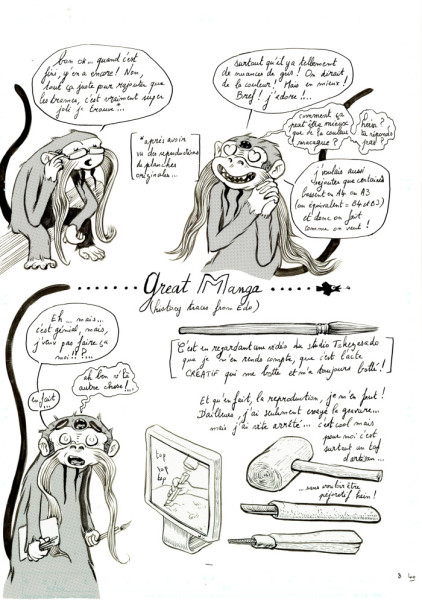 bon ok... quand c'est
fini, y'en a encore! Non,
tout ça juste pour rajouter que
les trames, c'est vraiment super
joli je trouve...
surtout qu'il y a tellement
de nuances de gris! On dirait
de la couleur! Mais en mieux!
Bref! j'adore!!..
*après avoir
vu des reproductions
de planches
originales...
comment ça
peut être mieux
que de la couleur
macaque?
hein?
tu réponds
pas!
j'voulais aussi
rajouter que certains
bossent en A4 ou A3
(ou équivalent = B4 et B3)
et donc on fait
comme on veut!
Great Manga
(history traces from Edo)
Eh... mais...
c'est génial, mais,
j'veux pas faire ça
moi!!?!...
en fait...
ah bon v'là
autre chose!...
C'est en regardant une vidéo du studio Takezasado
que je m'en rends compte, que c'est l'acte
CRÉATIF qui me botte et m'a toujours botté!
Et qu'en fait, la reproduction, je m'en fout!
D'ailleurs, j'ai seulement essayé la gravure...
mais j'ai vite arrêté... c'est cool mais
pour moi c'est
surtout un taf
d'artisan...
top
top
...sans vouloir être
péjoratif hein!
3